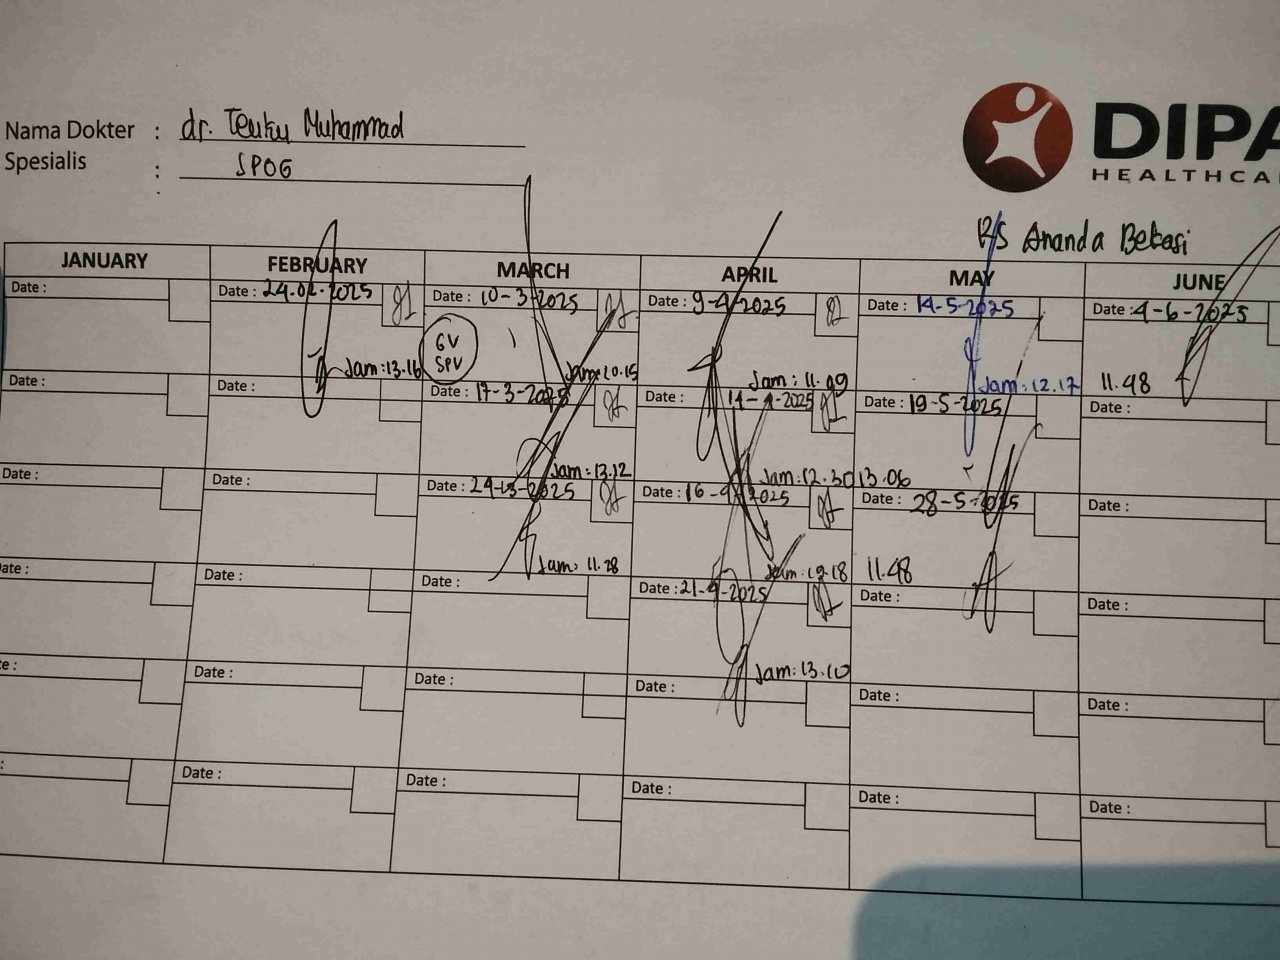 Nama Dokter : dr. Teuku Muhammad
Spesialis : SPOG
:
DIPA
HEALTHCA
RS Ananda Bekasi
JANUARY FEBRUARY MARCH APRIL MAY JUNE
Date : Date : 24.02.2025 Date : 10-3-2025 Date : 9-4-2025 Date : 14-5-2025 Date : 4-6-2025
GV
SPV
Jam : 13.16 Jam : 10.15 Jam : 11.09 Jam : 12.17 11.48
Date : Date : Date : 17-3-2025 Date : 14-4-2025 Date : 19-5-2025 Date :
Jam : 13.12 Jam : 12.30 13.06
Date : Date : Date : 24-3-2025 Date : 16-4-2025 Date : 28-5-2025 Date :
Jam : 11.28 Jam : 12.18 11.48
ate : Date : Date : Date : 21-4-2025 Date : Date :
Jam : 13.10
te : Date : Date : Date : Date : Date :
: Date : Date : Date : Date : Date :